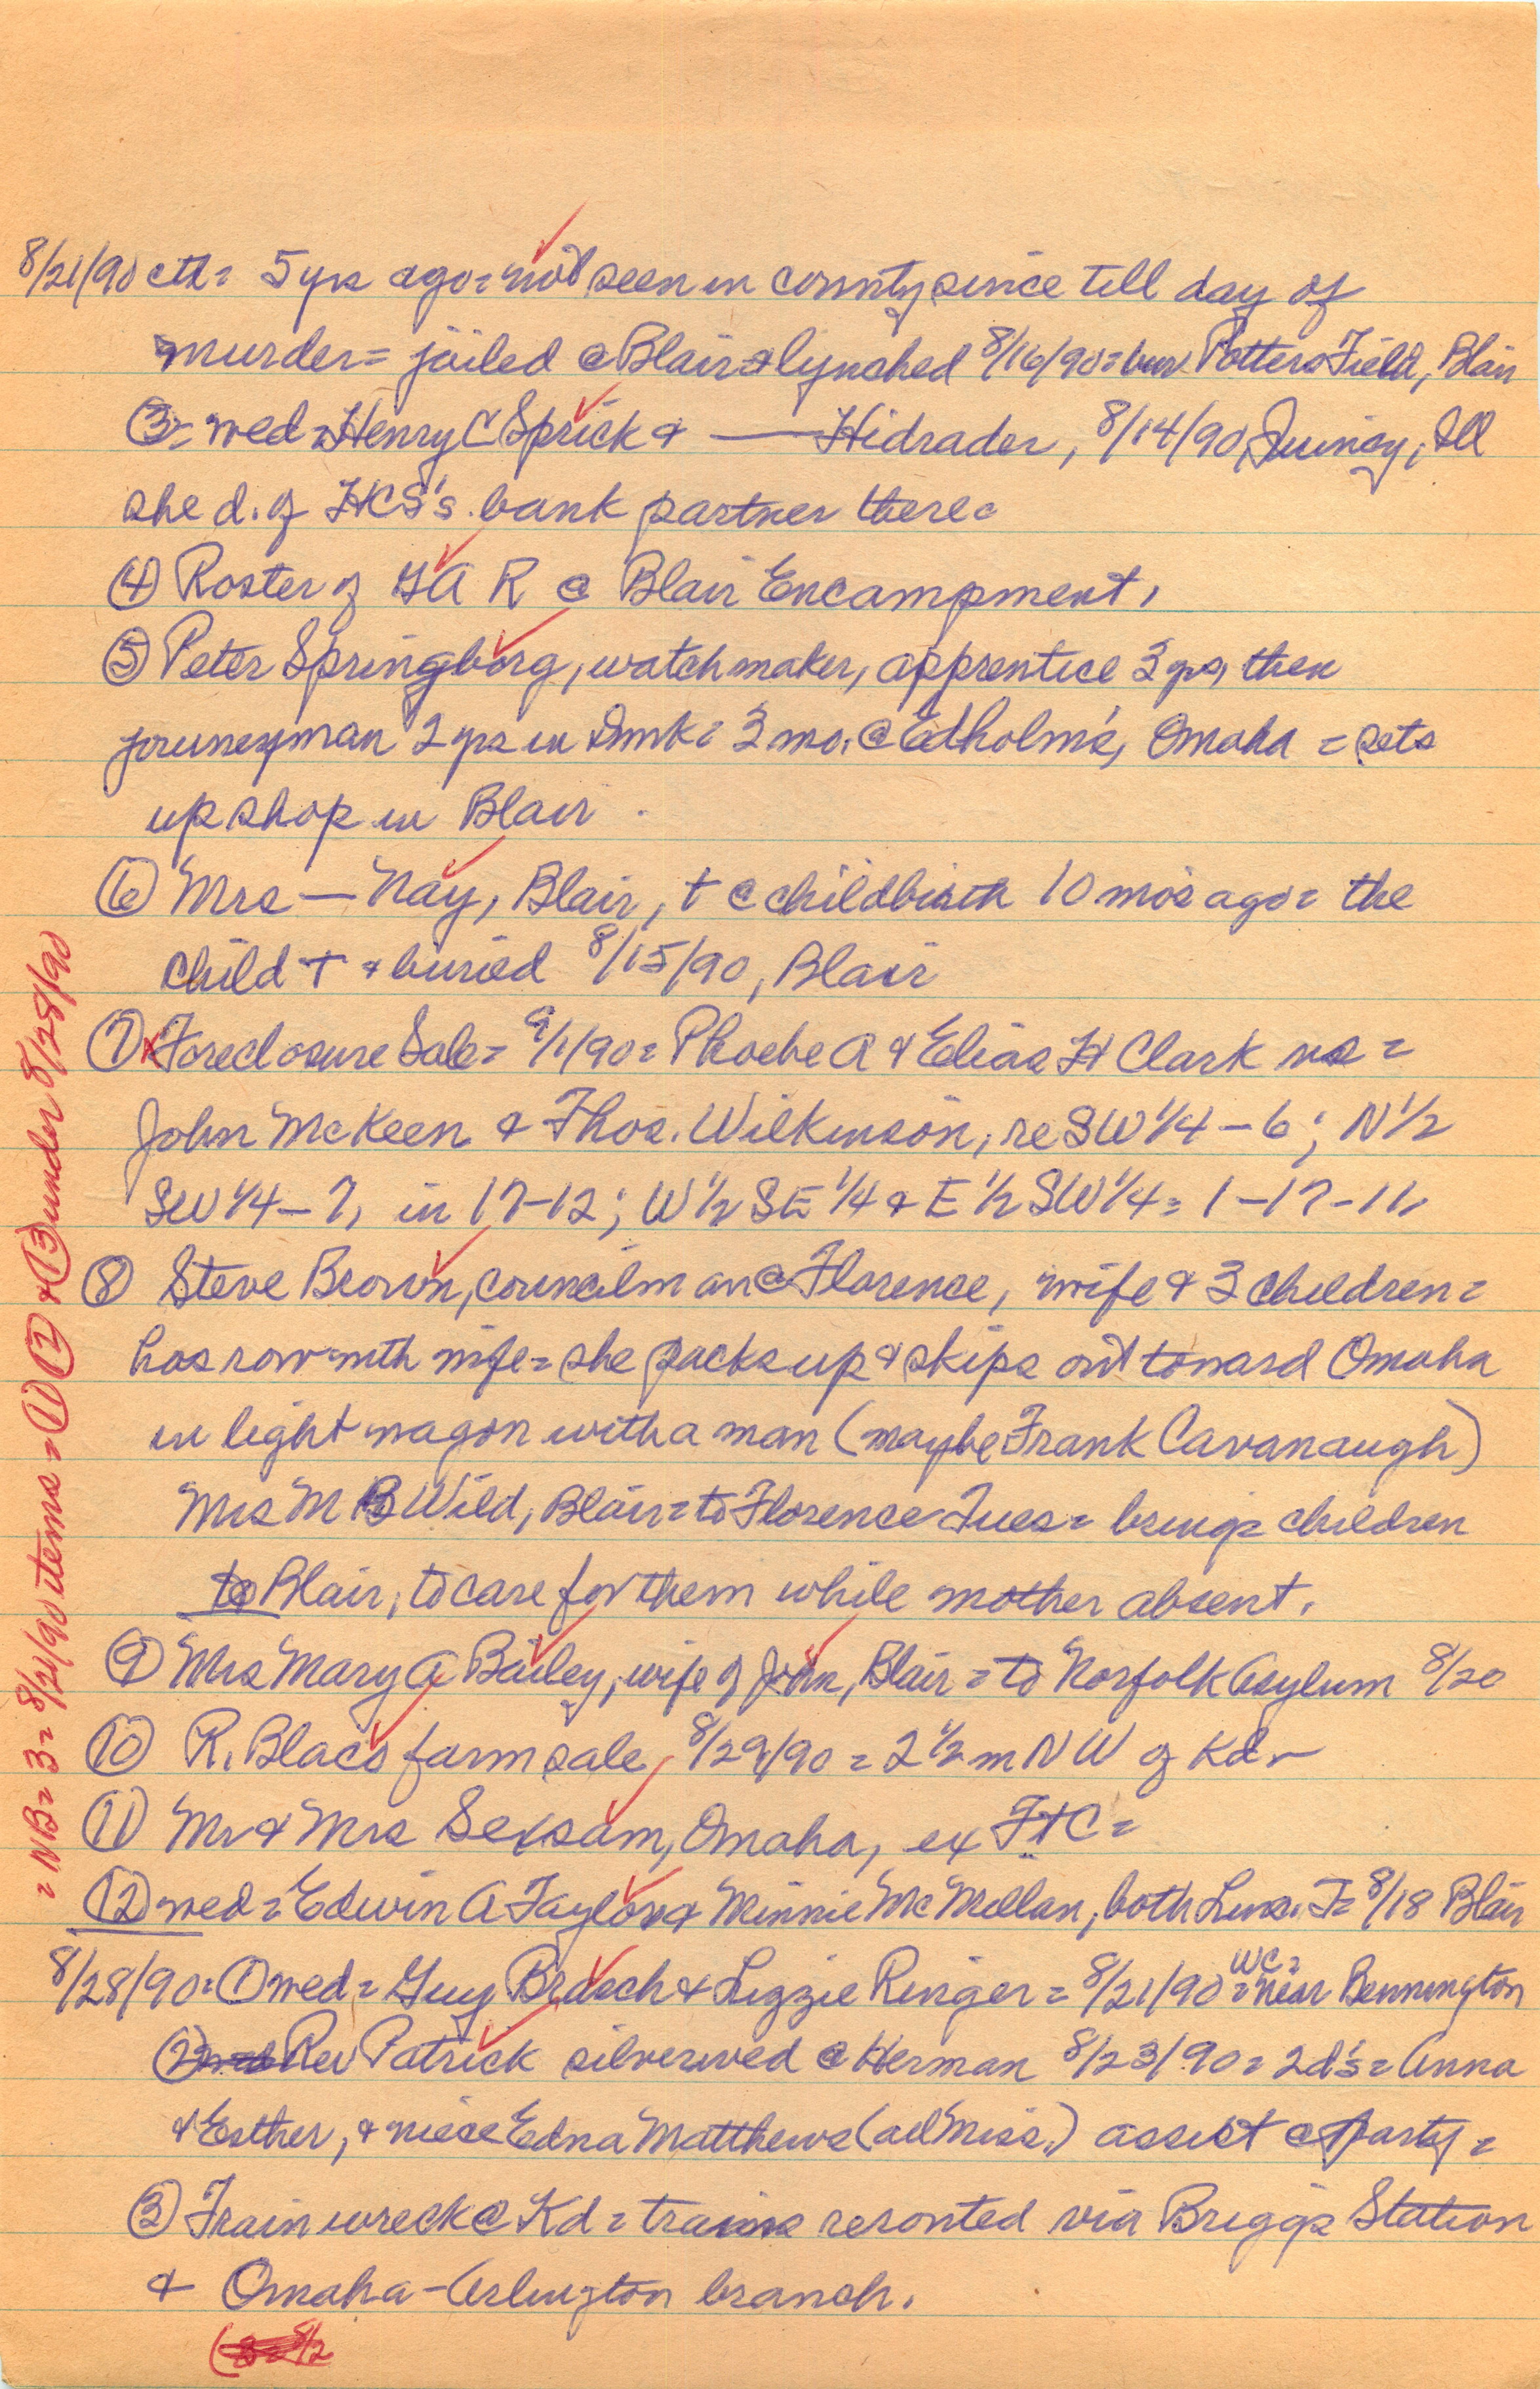 8/21/90 ctd= 5 yrs ago= not seen in county since till day of
murder= jailed @ Blair & lynched 8/16/90= bur Potters Field, Blair
③= wed= Henry C Sprick & — Hidrader, 8/14/90, Quincy, Ill
she d. of HCS's bank partner there=
④ Roster of GAR @ Blair Encampment,
⑤ Peter Springborg, watchmaker, apprentice 3 yrs, then
journeyman 2 yrs in Dmk= 3 mo. @ Edholm's, Omaha = sets
up shop in Blair.
⑥ Mrs — Nay, Blair, † @ childbirth 10 mos ago= the
child † & buried 8/15/90, Blair
⑦ x Foreclosure Sale= 9/1/90= Phoebe A & Elias H Clark vs =
John McKeen & Thos. Wilkinson, re SW 1/4 - 6; N 1/2
SW 1/4 - 7, in 17-12; W 1/2 SE 1/4 & E 1/2 SW 1/4= 1-17-11,
⑧ Steve Brown, councilman @ Florence, wife & 3 children=
has row with wife= she packs up & skips out toward Omaha
in light wagon with a man (maybe Frank Cavanaugh)
Mrs M B Wild, Blair= to Florence Tues= brings children
to Blair, to care for them while mother absent.
⑨ Mrs Mary A Bailey, wife of John, Blair = to Norfolk Asylum 8/20
⑩ R. Blaco farm sale, 8/29/90 = 2 1/2 m NW of Kd—
⑪ Mr & Mrs Sexsam, Omaha, ex FtC=
⑫ wed= Edwin A Taylor & Minnie McMillan, both = 8/18 Blair
8/28/90= ① wed= Guy Brdsch & Lizzie Ringer = 8/21/90 WC= = near Bennington
② Rev Patrick silverwed @ Herman 8/23/90= 2 d's= Anna
& Esther, & niece Edna Matthews (all Miss.) assist @ party=
③ Train wreck @ Kd= trains rerouted via Briggs Station
& Omaha-Arlington branch.
= NB= 3= 8/21/90 items = ⑪ ⑫ & ⑬ under 8/28/90